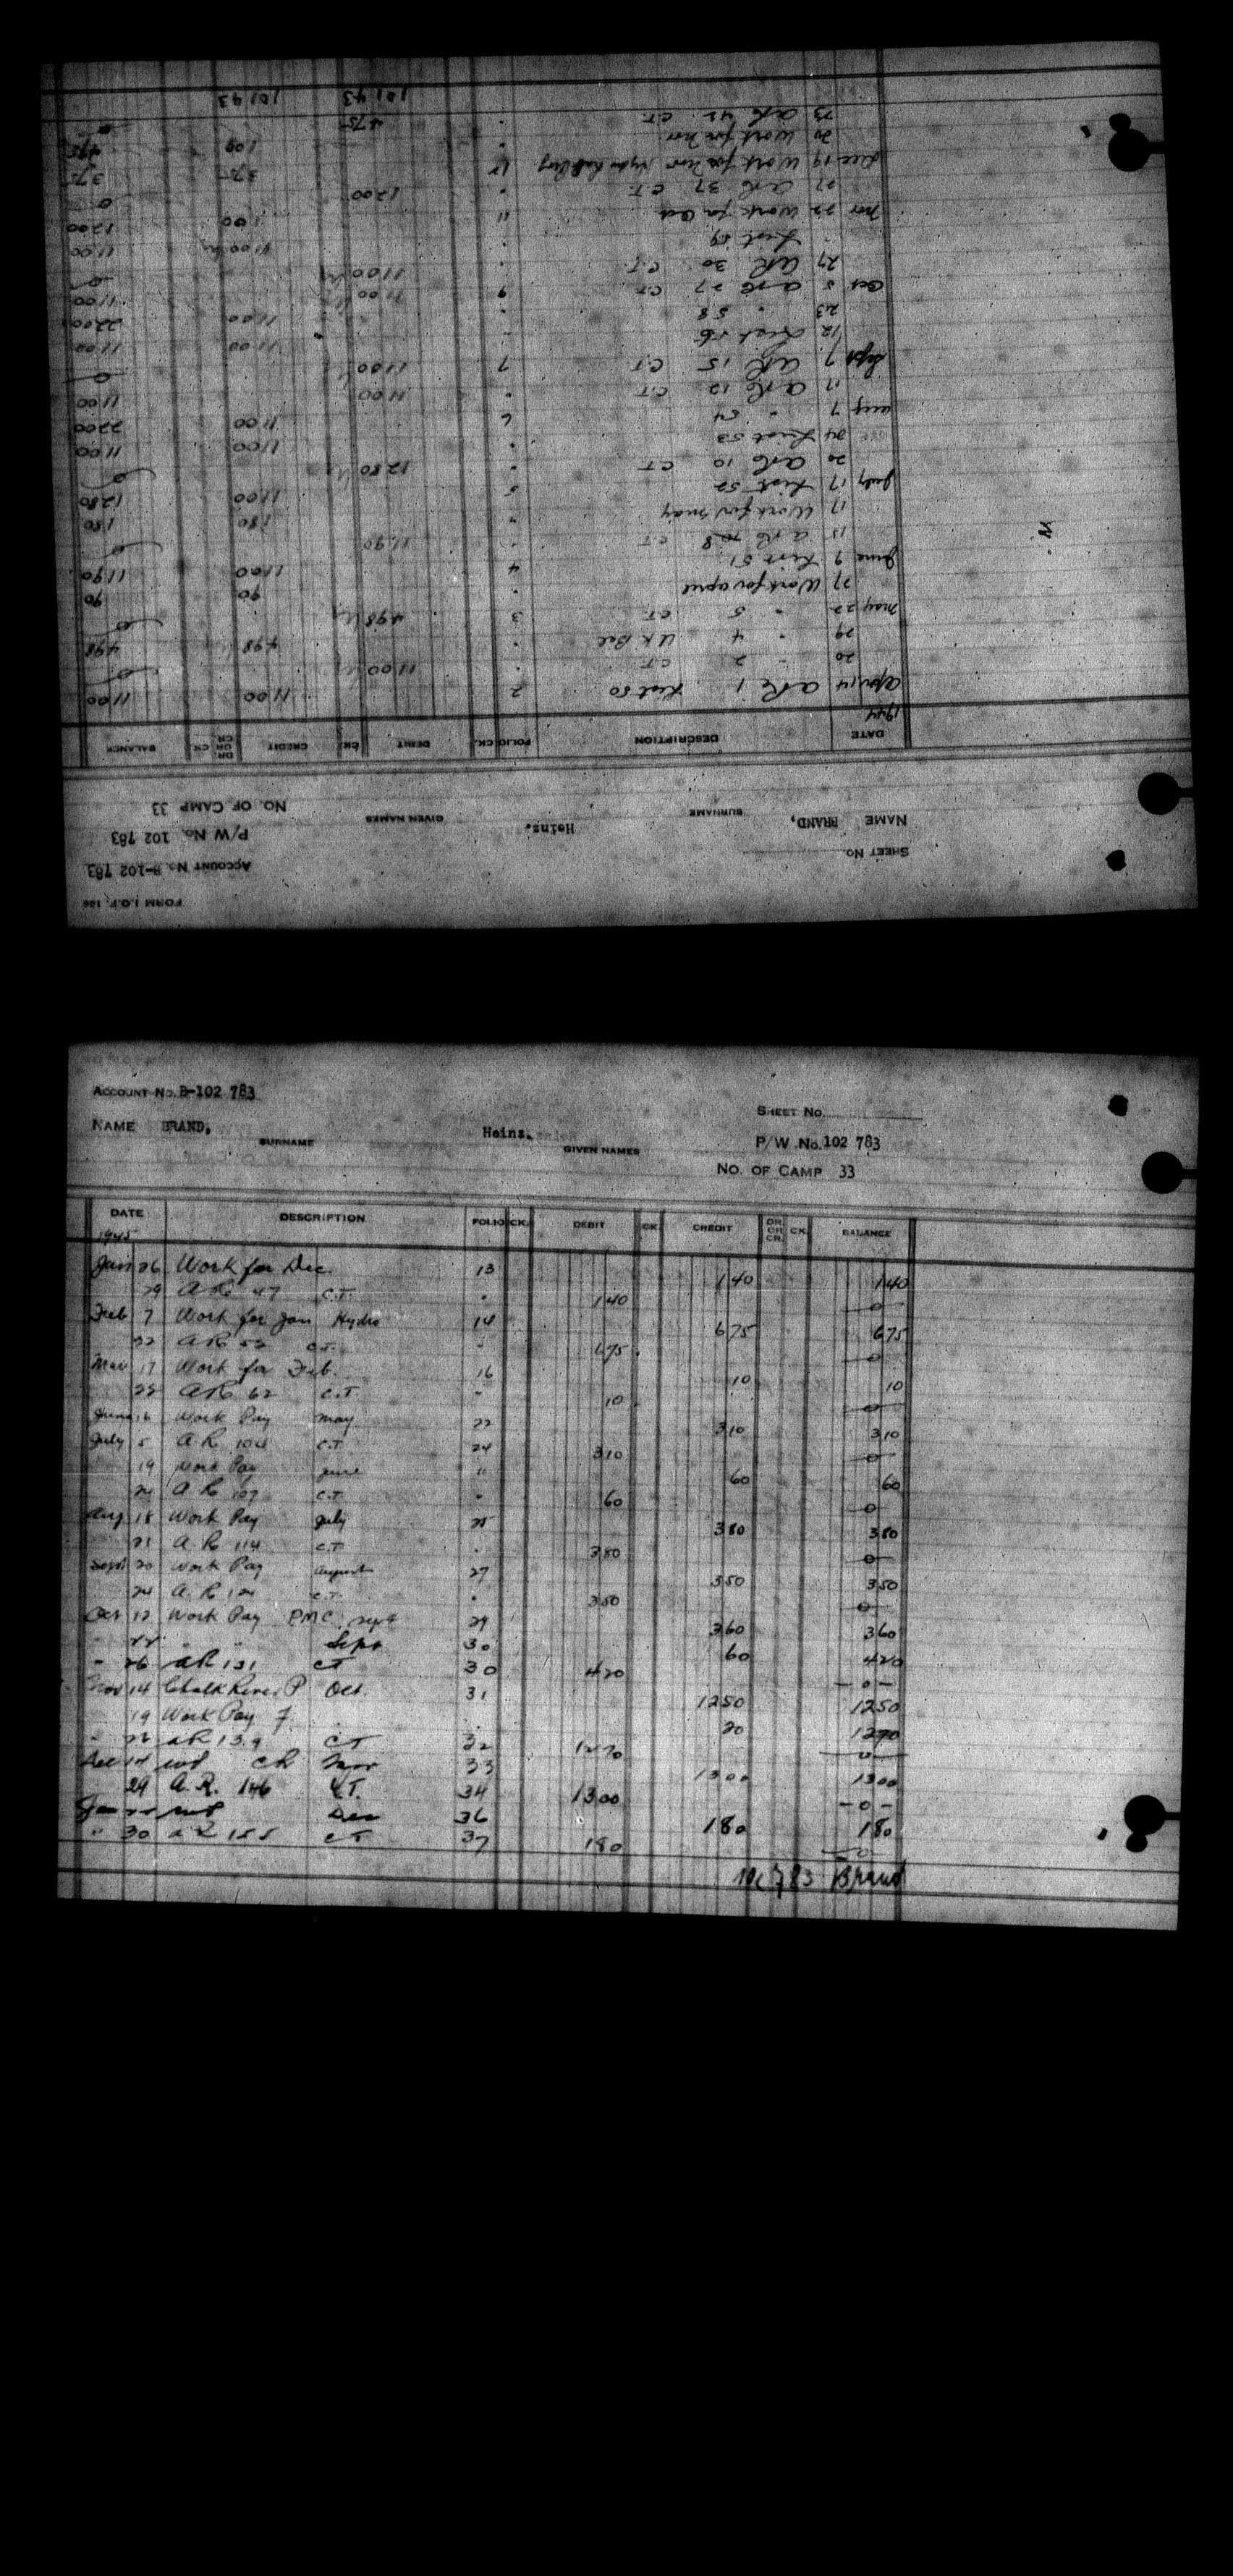 FORM I.O.F. 106
ACCOUNT No. B-102 783
SHEET No.
P/W No. 102 783
NAME BRAND, Heinz.
SURNAME GIVEN NAMES
NO. OF CAMP 33
DATE DESCRIPTION FOLIO CK. DEBIT CK. CREDIT DR. OR CR. CK. BALANCE
1944
Apr 14 AR 1 List 50 2 1100 1100
20 " 2 C.T. " 1100 0
29 " 4 U.K. Bal " 498 498
May 22 " 5 C.T. 3 498 0
27 Work for April " 90 90
June 9 List 51 4 1100 1190
15 AR 8 C.T. " 1190 0
17 Work for May " 180 180
July 17 List 52 5 1100 1280
20 AR 10 C.T. " 1280 0
24 List 53 " 1100 1100
Aug 7 " 54 6 1100 2200
17 AR 12 C.T. " 1100 1100
Sept 7 AR 15 C.T. 7 1100 0
12 List 56 " 1100 1100
23 " 58 " 1100 2200
Oct 5 AR 27 C.T. 9 1100 1100
27 AR 30 C.T. " 1100 0
" List 59 " 1100 1100
Nov 22 Work for Oct 11 100 1200
27 AR 37 C.T. " 1200 0
Dec 19 Work for Nov 12 375 375
20 Work for Nov " 100 475
23 AR 42 C.T. " 475 0
101 43 101 43
ACCOUNT No. B-102 783
SHEET No.
NAME BRAND, Heinz.
SURNAME GIVEN NAMES
P/W No. 102 783
NO. OF CAMP 33
DATE DESCRIPTION FOLIO CK. DEBIT CK. CREDIT DR. OR CR. CK. BALANCE
1945
Jan 26 Work for Dec. 13 140 140
29 AR 47 C.T. " 140 0
Feb 7 Work for Jan Hydro 14 675 675
22 AR 52 C.T. " 675 0
Mar 17 Work for Feb. 16 10 10
23 AR 62 C.T. " 10 0
June 16 Work Pay May 22 310 310
July 5 A.R. 104 C.T. 24 310 0
19 Work Pay June " 60 60
24 A R 107 C.T. " 60 0
Aug 18 Work Pay July 25 380 380
21 A R 114 C.T. " 380 0
Sept 20 Work Pay August 27 350 350
24 A. R 124 C.T. " 350 0
Oct 12 Work Pay P.M.C. Sept 29 360 360
" 22 " " Sept 30 60 420
" 26 AR 131 CT 30 420 - 0 -
Nov 14 Chalk River P Oct. 31 1250 1250
19 Work Pay 7 " " 20 1270
" 26 AR 139 CT 32 1270 0
Dec 14 WP CR Nov 33 1300 1300
29 A.R. 146 C.T. 34 1300 - 0 -
Jan 22 WP Dec 36 180 180
" 30 AR 155 CT 37 180 0
102783 Brand